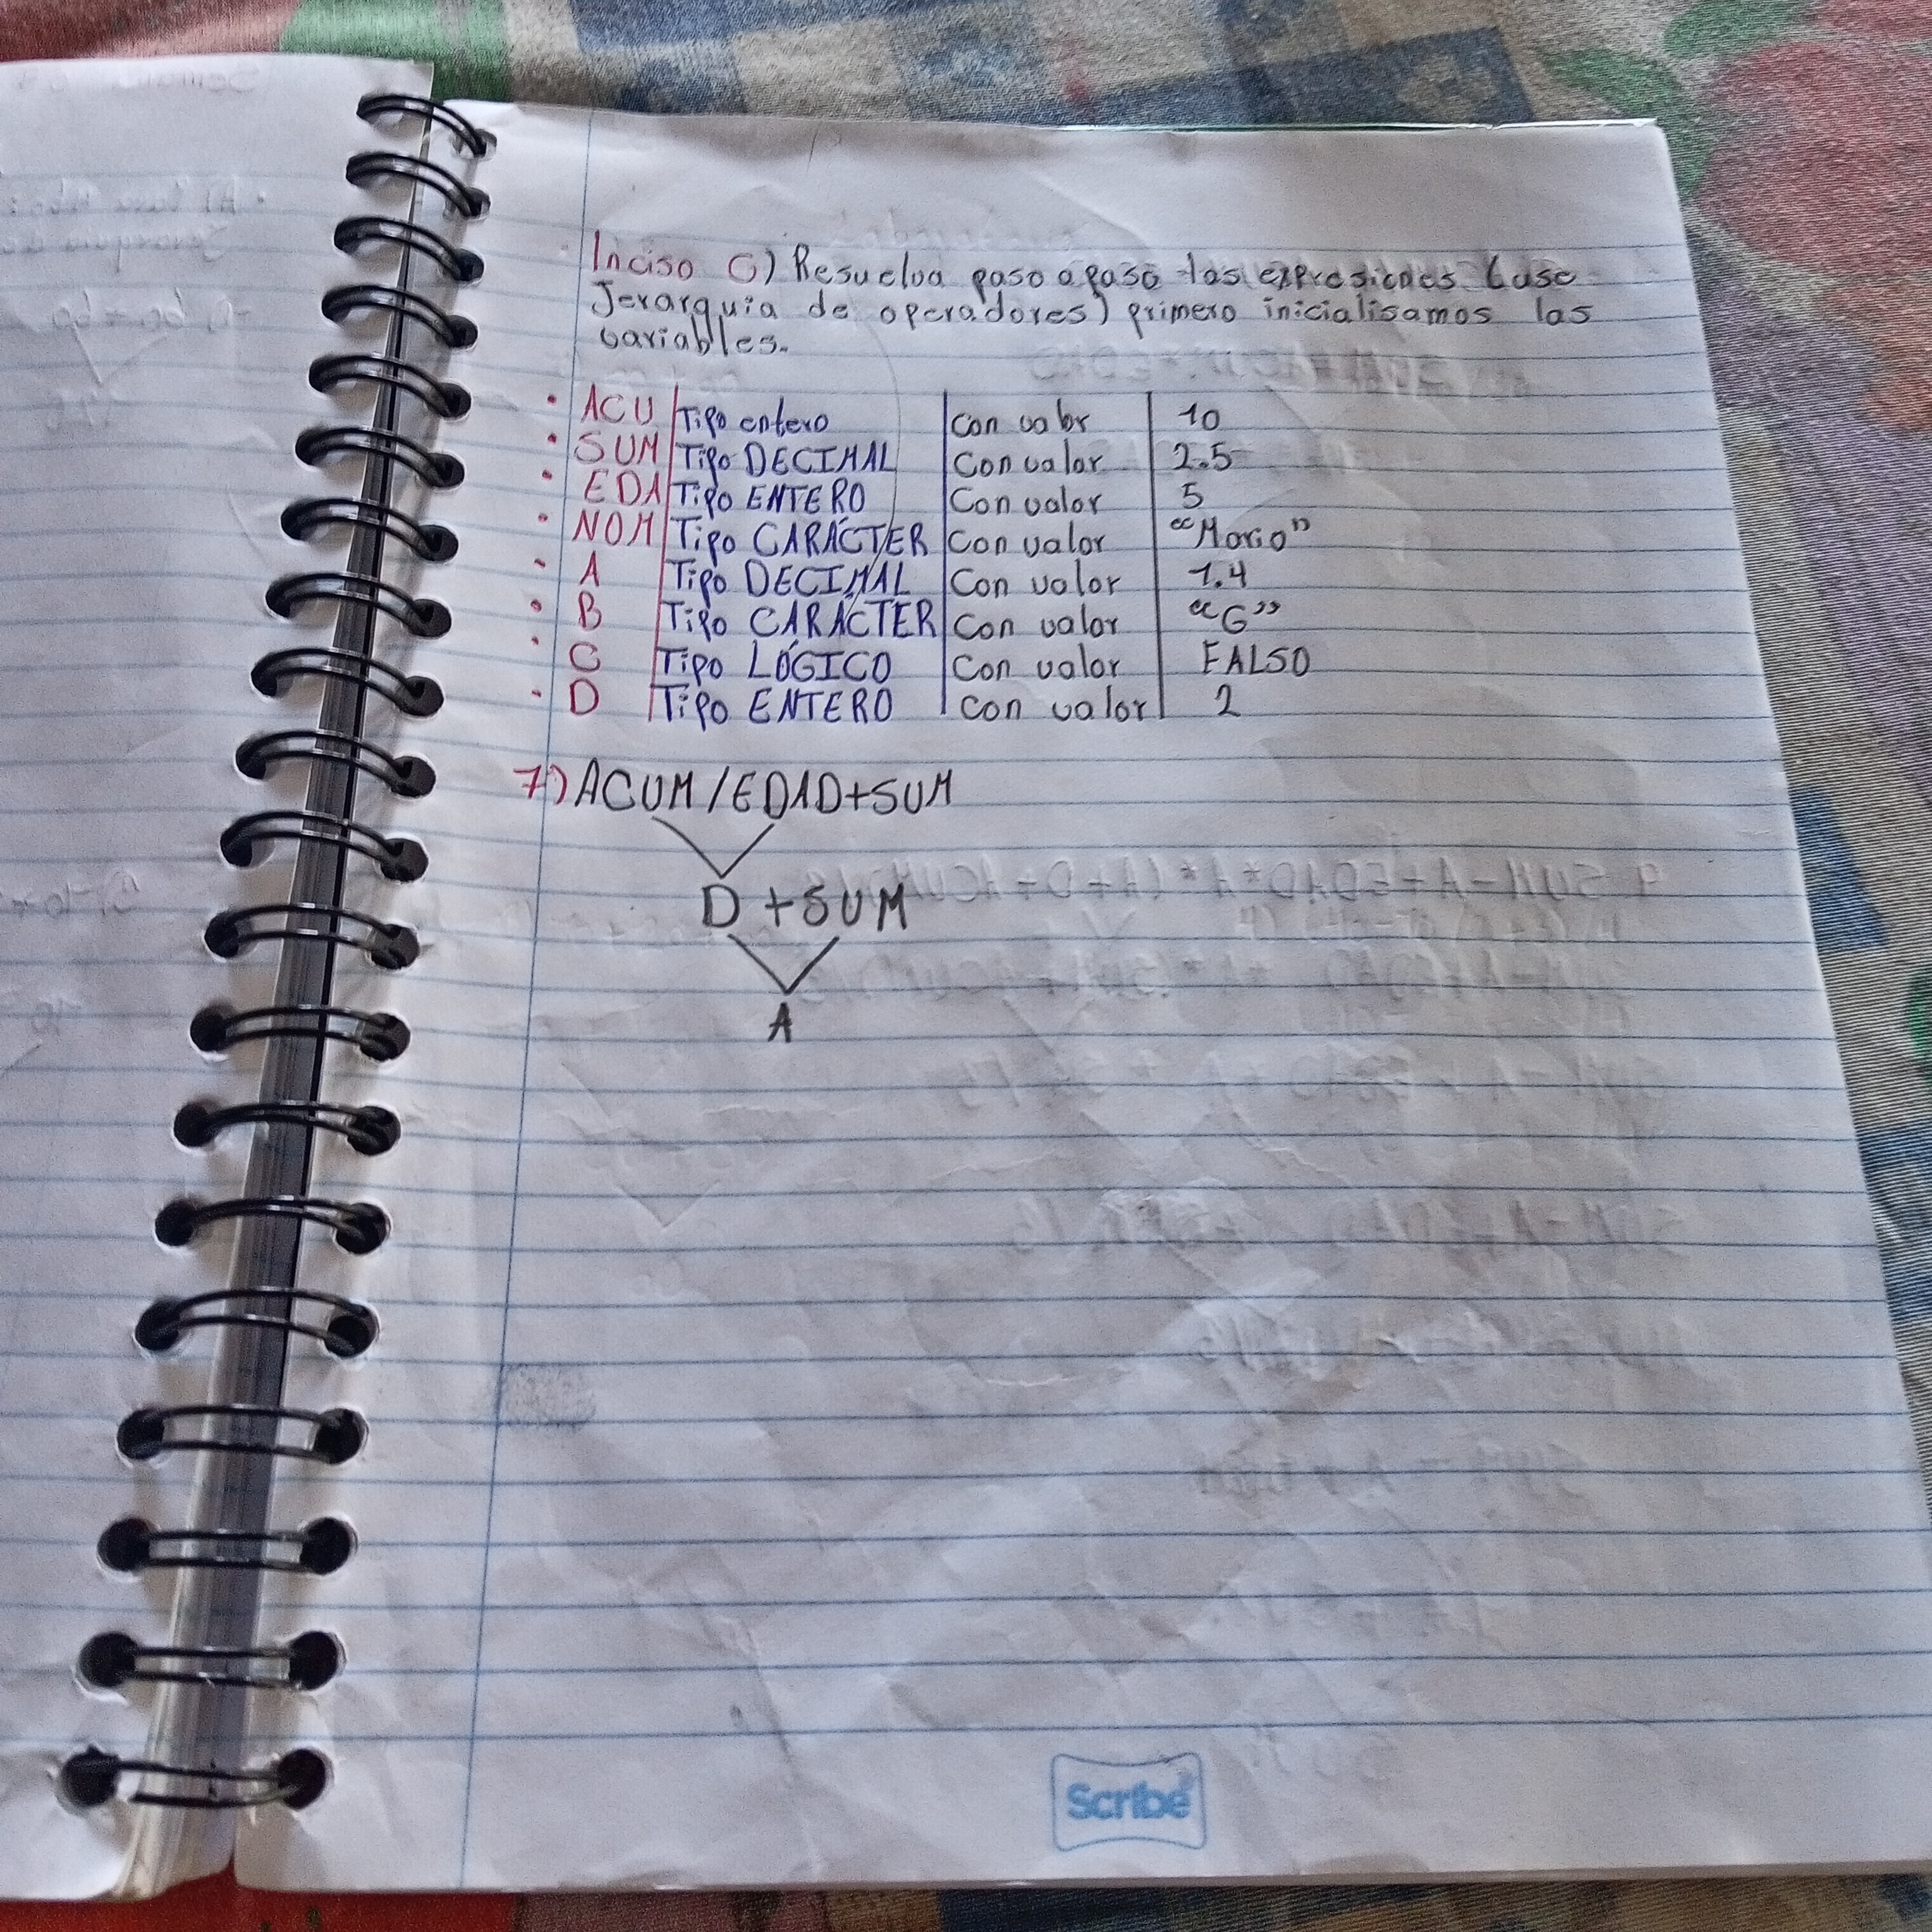 Inciso C) Resuelva paso a paso las expresiones (use
Jerarquia de operadores) primero inicialisamos las
variables.
• ACU Tipo entero Con valor 10
• SUM Tipo DECIMAL Con valor 2.5
• EDA Tipo ENTERO Con valor 5
• NOM Tipo CARÁCTER Con valor "Mario"
• A Tipo DECIMAL Con valor 1.4
• B Tipo CARÁCTER Con valor "G"
• C Tipo LÓGICO Con valor FALSO
• D Tipo ENTERO Con valor 2
7) ACUM/EDAD+SUM
D + SUM
A
Scribe